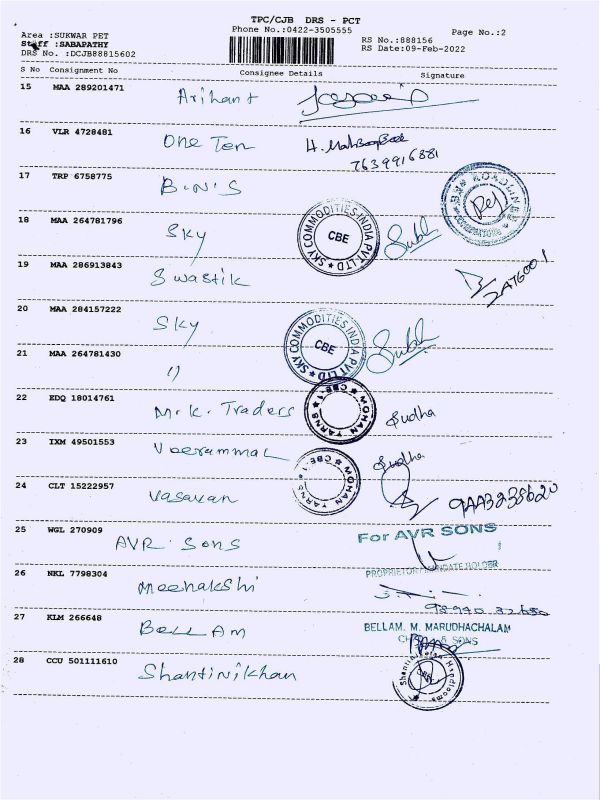 TPC/CJB DRS - PCT
Area :SUKWAR PET
Phone No.:0422-3505555
Page No.:2
Staff :SABAPATHY
RS No.:888156
DRS No. :DCJB88815602
RS Date:09-Feb-2022
S No Consignment No Consignee Details Signature
15 MAA 289201471 Arihant
16 VLR 4728481 One Ten
7639916881
17 TRP 6758775 B.N.S
18 MAA 264781796 Sky SKY COMMODITIES INDIA PVT LTD CBE Subh
19 MAA 286913843 Swastik
20 MAA 284157222 Sky SKY COMMODITIES INDIA PVT LTD CBE Subh
21 MAA 264781430 11
22 EDQ 18014761 M.K. Traders MOHAN YARNS CBE-1 Sudha
23 IXM 49501553 Veerammal MOHAN YARNS CBE-1 Sudha
24 CLT 15222957 Vasavan
25 WGL 270909 AVR Sons For AVR SONS
26 NKL 7798304 Meenakshi
27 KLM 266648 Bellam BELLAM. M. MARUDHACHALAM
& SONS
28 CCU 501111610 Shantinikhan